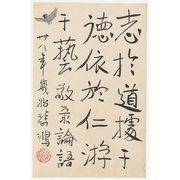 志於道據于
德依於仁游
于藝敬录論語
廿八年悲鴻